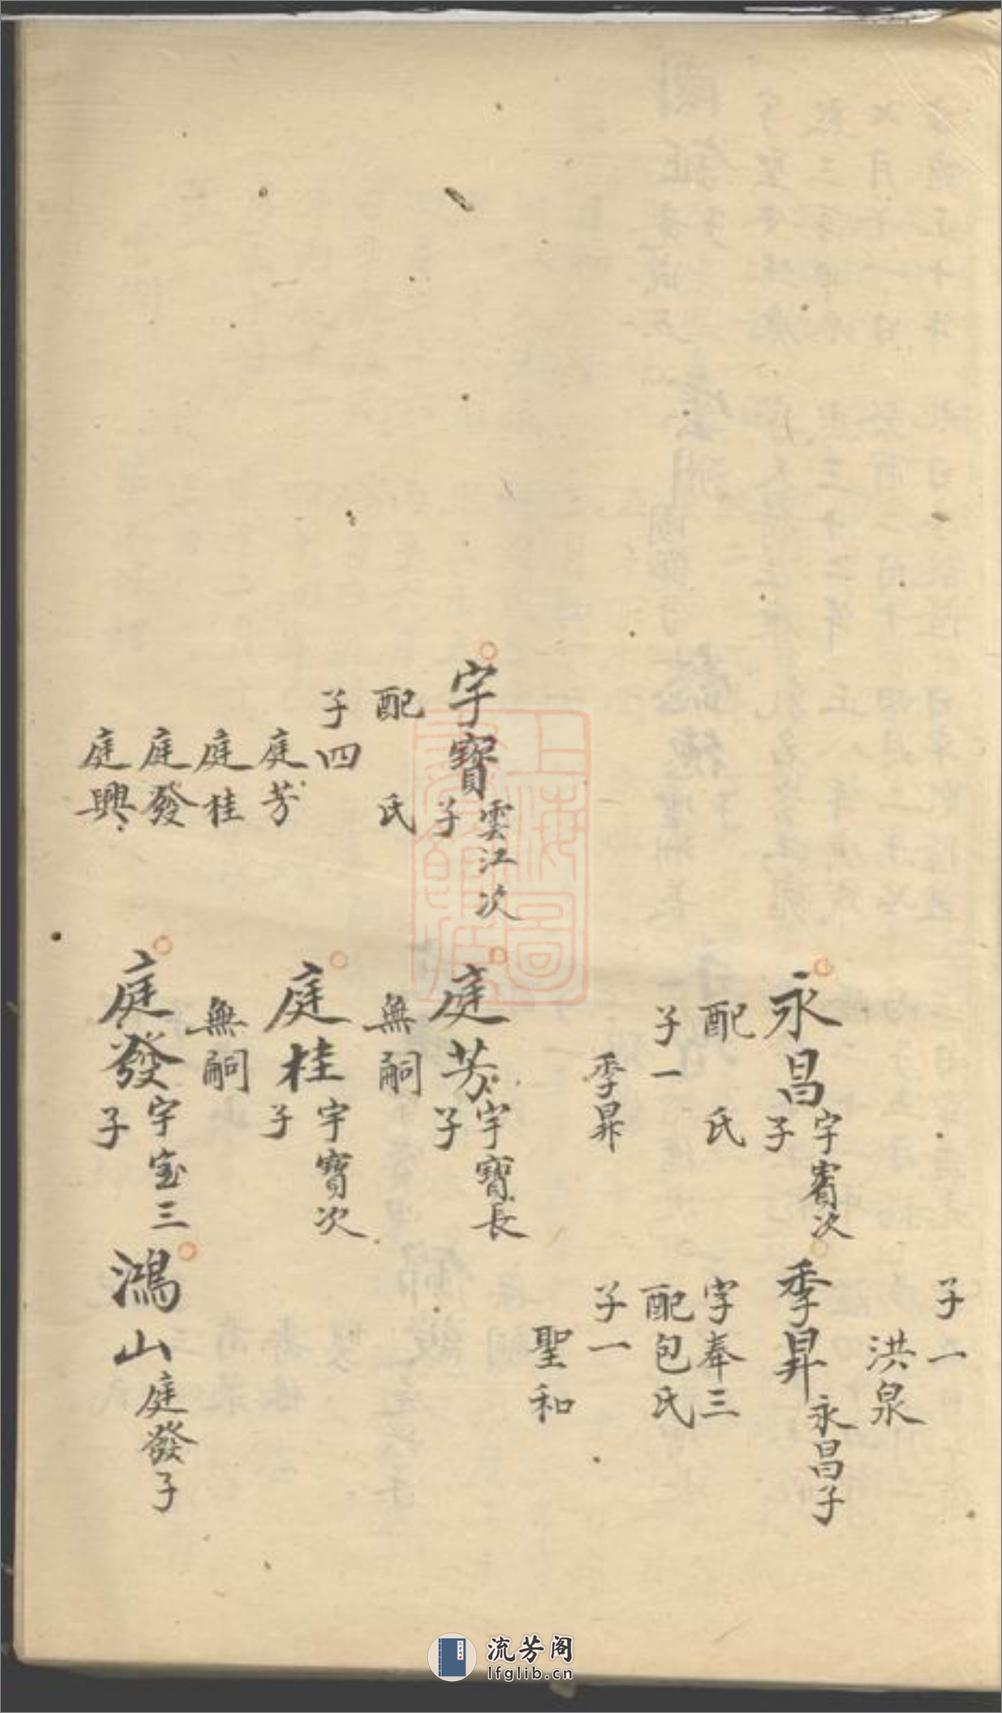 子一
洪泉
永昌宇賓次子
配 氏
子一
季昇
季昇永昌子
字奉三
配包氏
子一
聖和
宇寶雲江次子
配 氏
子四
庭芳
庭桂
庭發
庭興
庭芳宇寶長子
無嗣
庭桂宇寶次子
無嗣
庭發宇宝三子
鴻山庭發子
上海圖書館藏
流芳阁
lfglib.cn